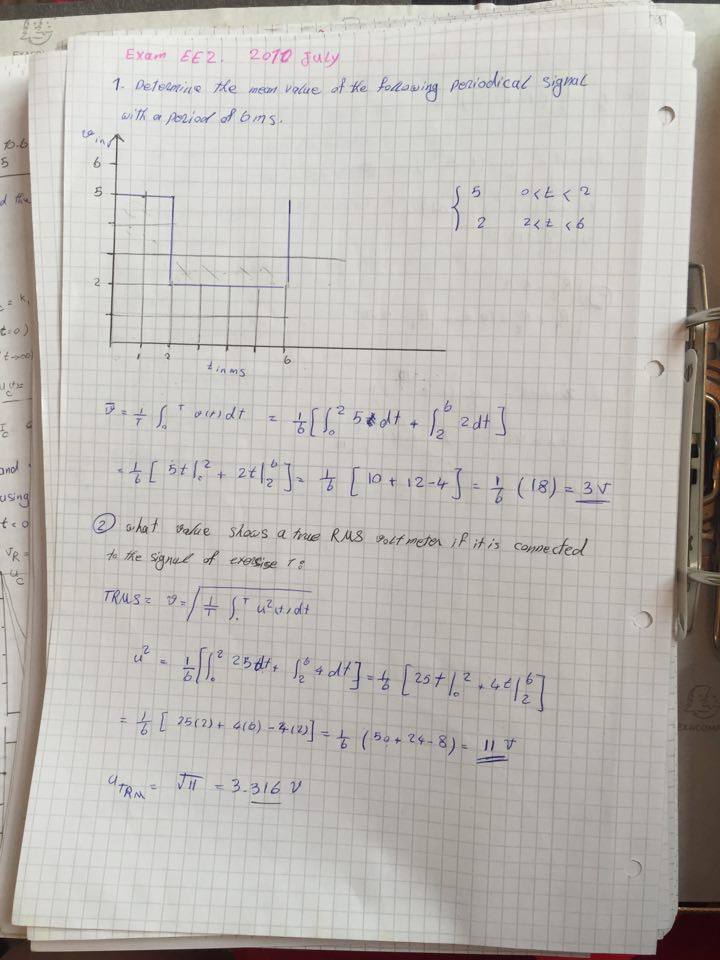 Exam EE2. 2010 July
1. Determine the mean value of the following periodical signal
with a period of 6ms.
v in V
6
5
2
1 2 6
t in ms
{ 5 0 < t < 2
2 2 < t < 6
v̄ = 1/T ∫₀ᵀ v(t) dt = 1/6 [ ∫₀² 5 dt + ∫₂⁶ 2 dt ]
= 1/6 [ 5t |₀² + 2t |₂⁶ ] = 1/6 [ 10 + 12 - 4 ] = 1/6 (18) = 3 V
② what value shows a true RMS voltmeter if it is connected
to the signal of exersise 1:
TRMS = v = √( 1/T ∫₀ᵀ u²(t) dt )
u² = 1/6 [ ∫₀² 25 dt + ∫₂⁶ 4 dt ] = 1/6 [ 25t |₀² + 4t |₂⁶ ]
= 1/6 [ 25(2) + 4(6) - 4(2) ] = 1/6 (50 + 24 - 8) = 11 V
u TRM = √11 = 3.316 V